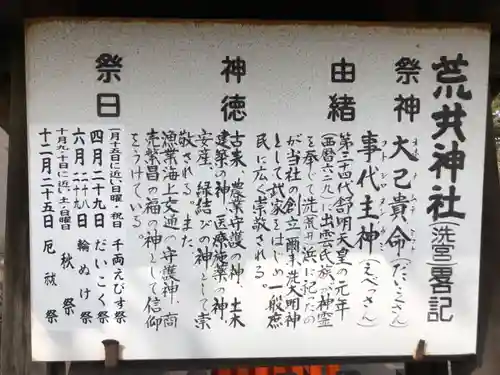 荒井神社(洗宮)畧記
祭神
大己貴命(だいこくさん)
オオナムチノミコト
事代主神(えべっさん)
コトシロヌシノカミ
由緒
第三十四代舒明天皇の元年
(西暦六二九)に出雲氏族が神霊
を奉じて洗荒井浜に祀ったの
が当社の創立爾来洗大明神
として武家をはじめ一般庶
民に広く崇敬される。
神徳
古来、農業守護の神、土木
建築の神、医療施薬の神
安産、縁結びの神として崇
敬される。また
漁業海上交通の守護神、商
売繁昌の福の神として信仰
をうけている。
祭日
(一月十五日に近い日曜・祝日)千両えびす祭
四月二十九日 だいこく祭
六月二十八二十九日 輪ぬけ祭
十月九・十日に近い土・日曜日 秋祭
十二月二十五日 厄祓祭